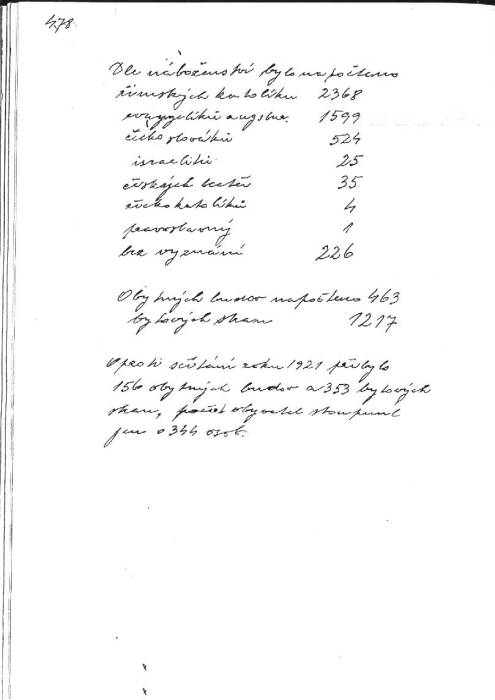 478.
Dle náboženství bylo napočteno
římských katolíků 2368
evangelíků augsbur. 1599
česko slováků 524
israelitů 25
českých bratří 35
řeckokatolíků 4
pravoslavný 1
bez vyznání 226
Obytných budov napočteno 463
bytových stran 1217
Oproti sčítání roku 1921 přibylo
156 obytných budov a 353 bytových
stran, počet obyvatel stoupnul
jen o 344 osob.